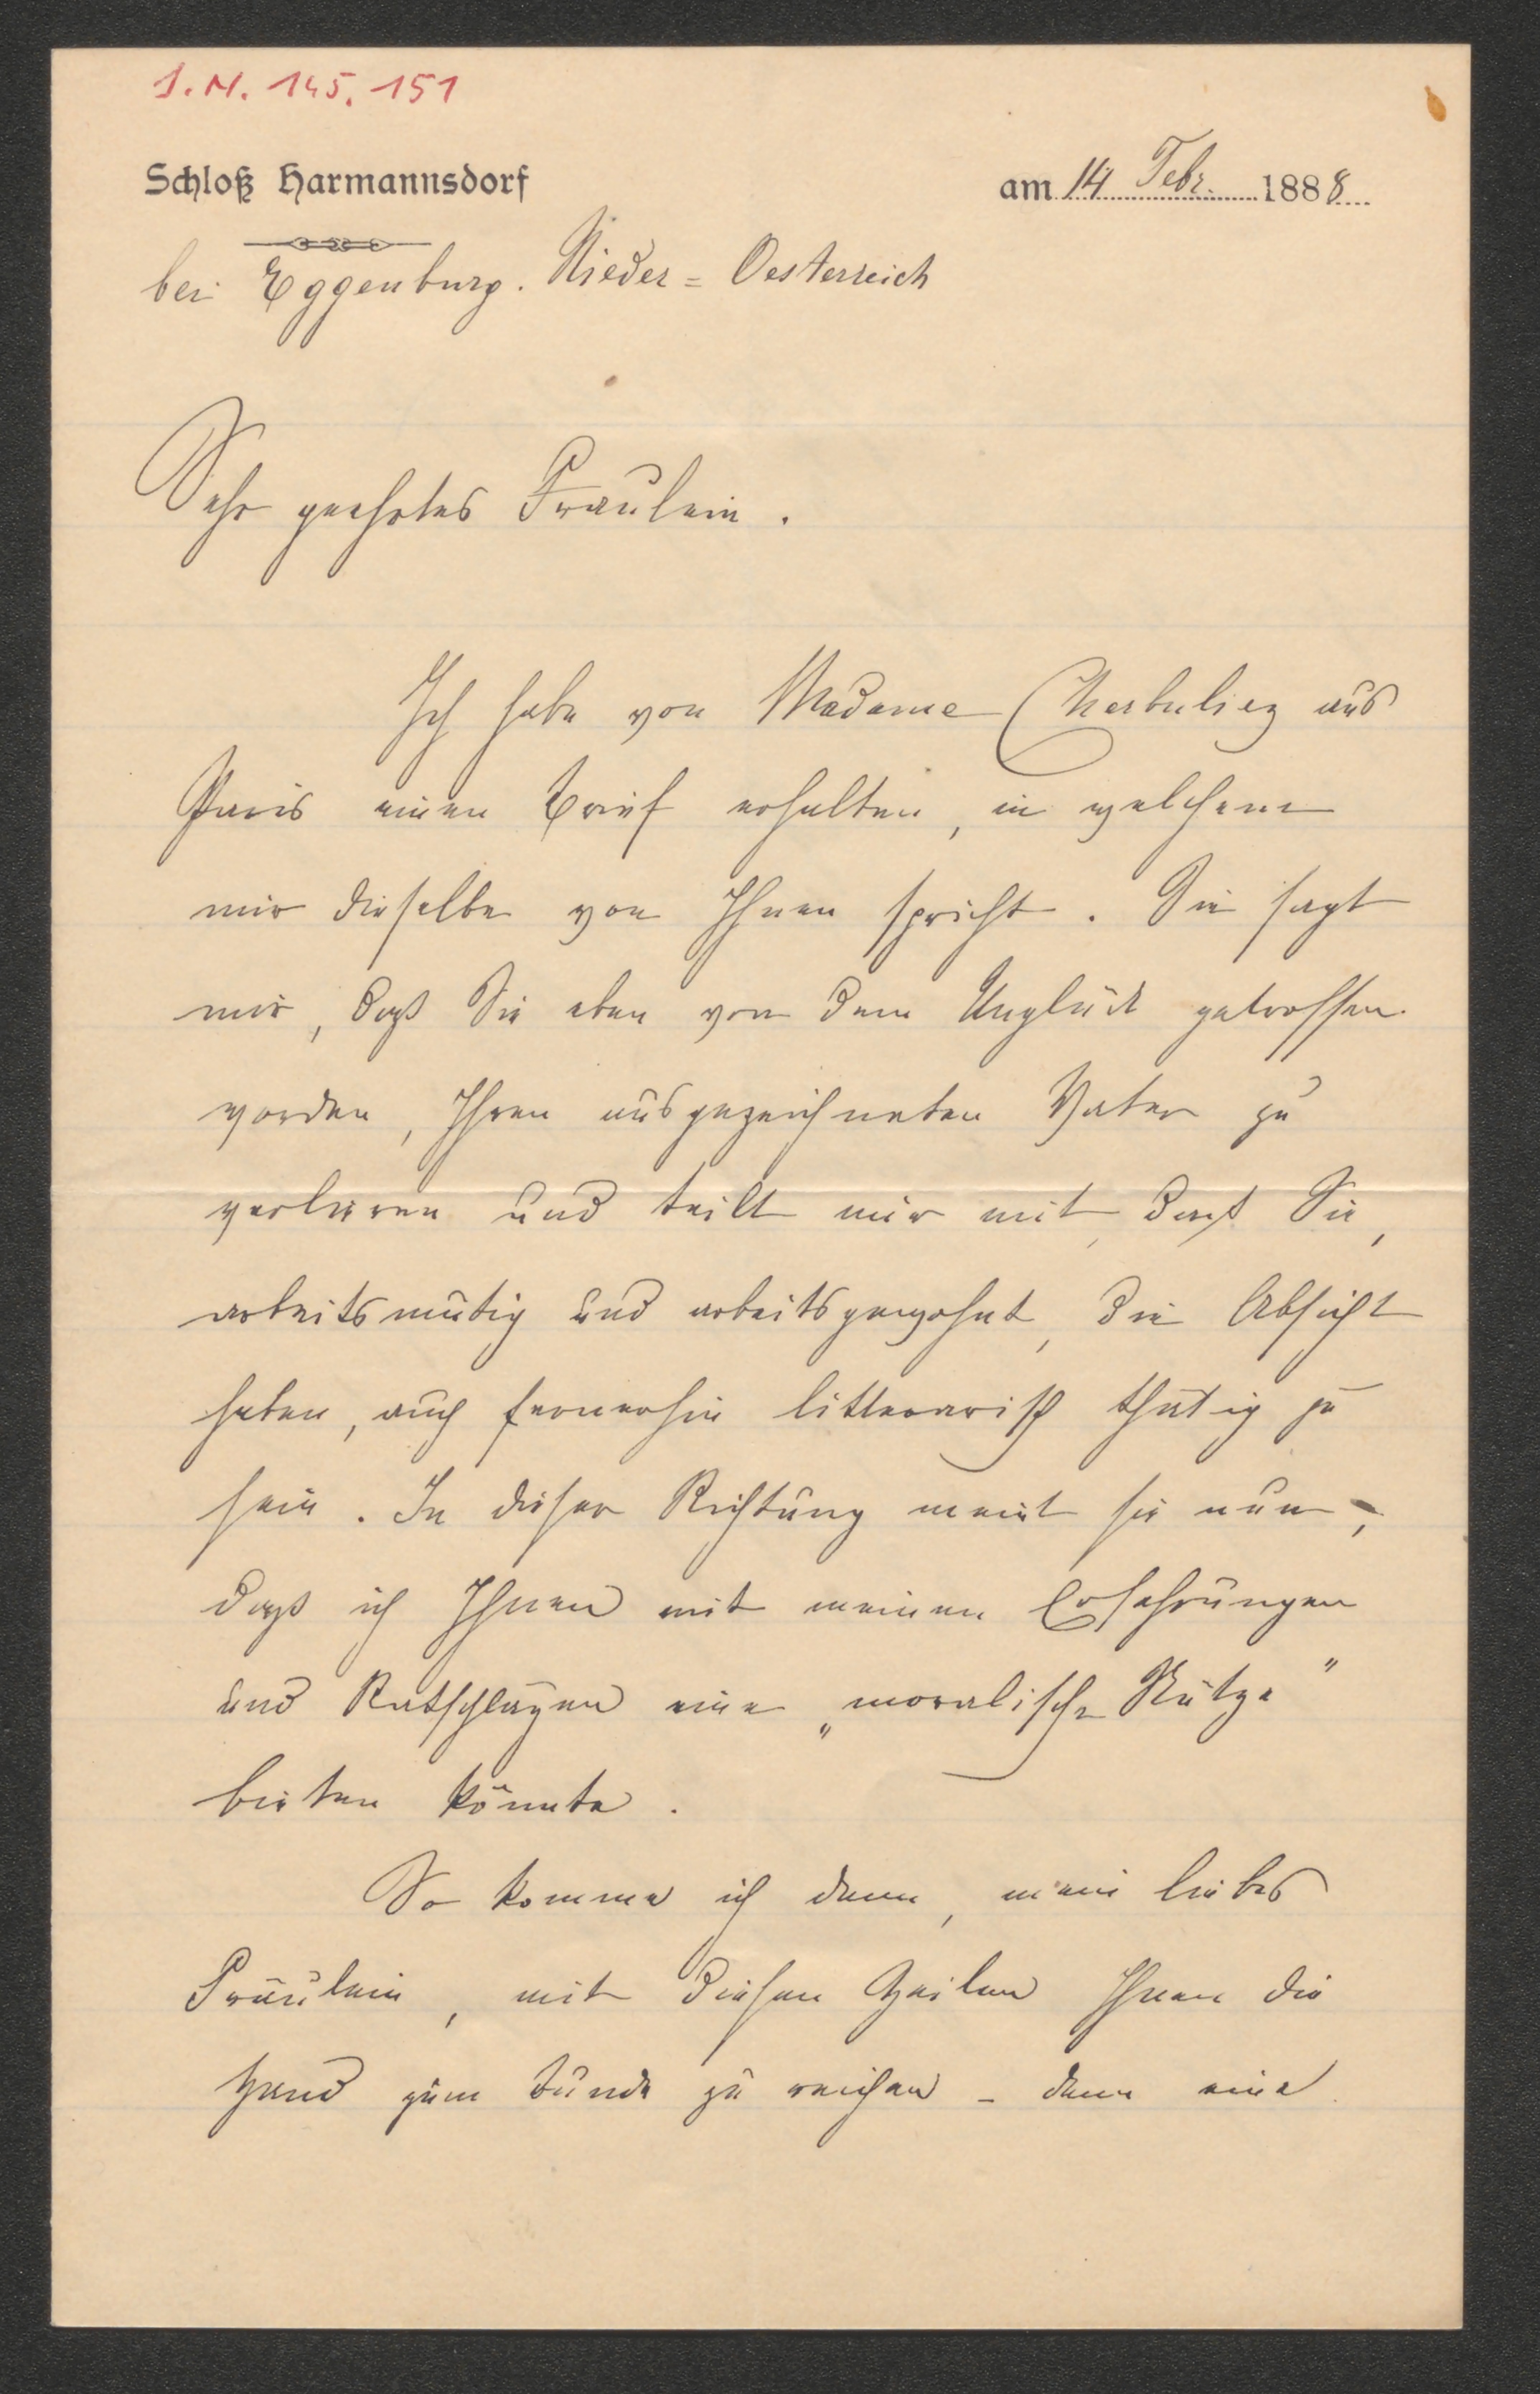 I.N. 145.151
Schloß Harmannsdorf
am 14 Febr. 1888
bei Eggenburg. Nieder=Oesterreich
Sehr geehrtes Fräulein.
Ich habe von Madame Cherbuliez aus
Paris einen Brief erhalten, in welchem
mir dieselbe von Ihnen spricht. Sie sagt
mir, daß Sie eben von dem Unglück getroffen
worden, Ihren ausgezeichneten Vater zu
verlieren und teilt mir mit, daß Sie,
arbeitsmutig und arbeitsgewohnt, die Absicht
haben, auch fernerhin litterarisch thätig zu
sein. In dieser Richtung meint sie nun,
daß ich Ihnen mit meinen Erfahrungen
und Ratschlägen eine „moralische Stütze"
bieten könnte.
So komme ich denn, mein liebes
Fräulein, mit diesen Zeilen Ihnen die
Hand zum Bunde zu reichen – denn eine